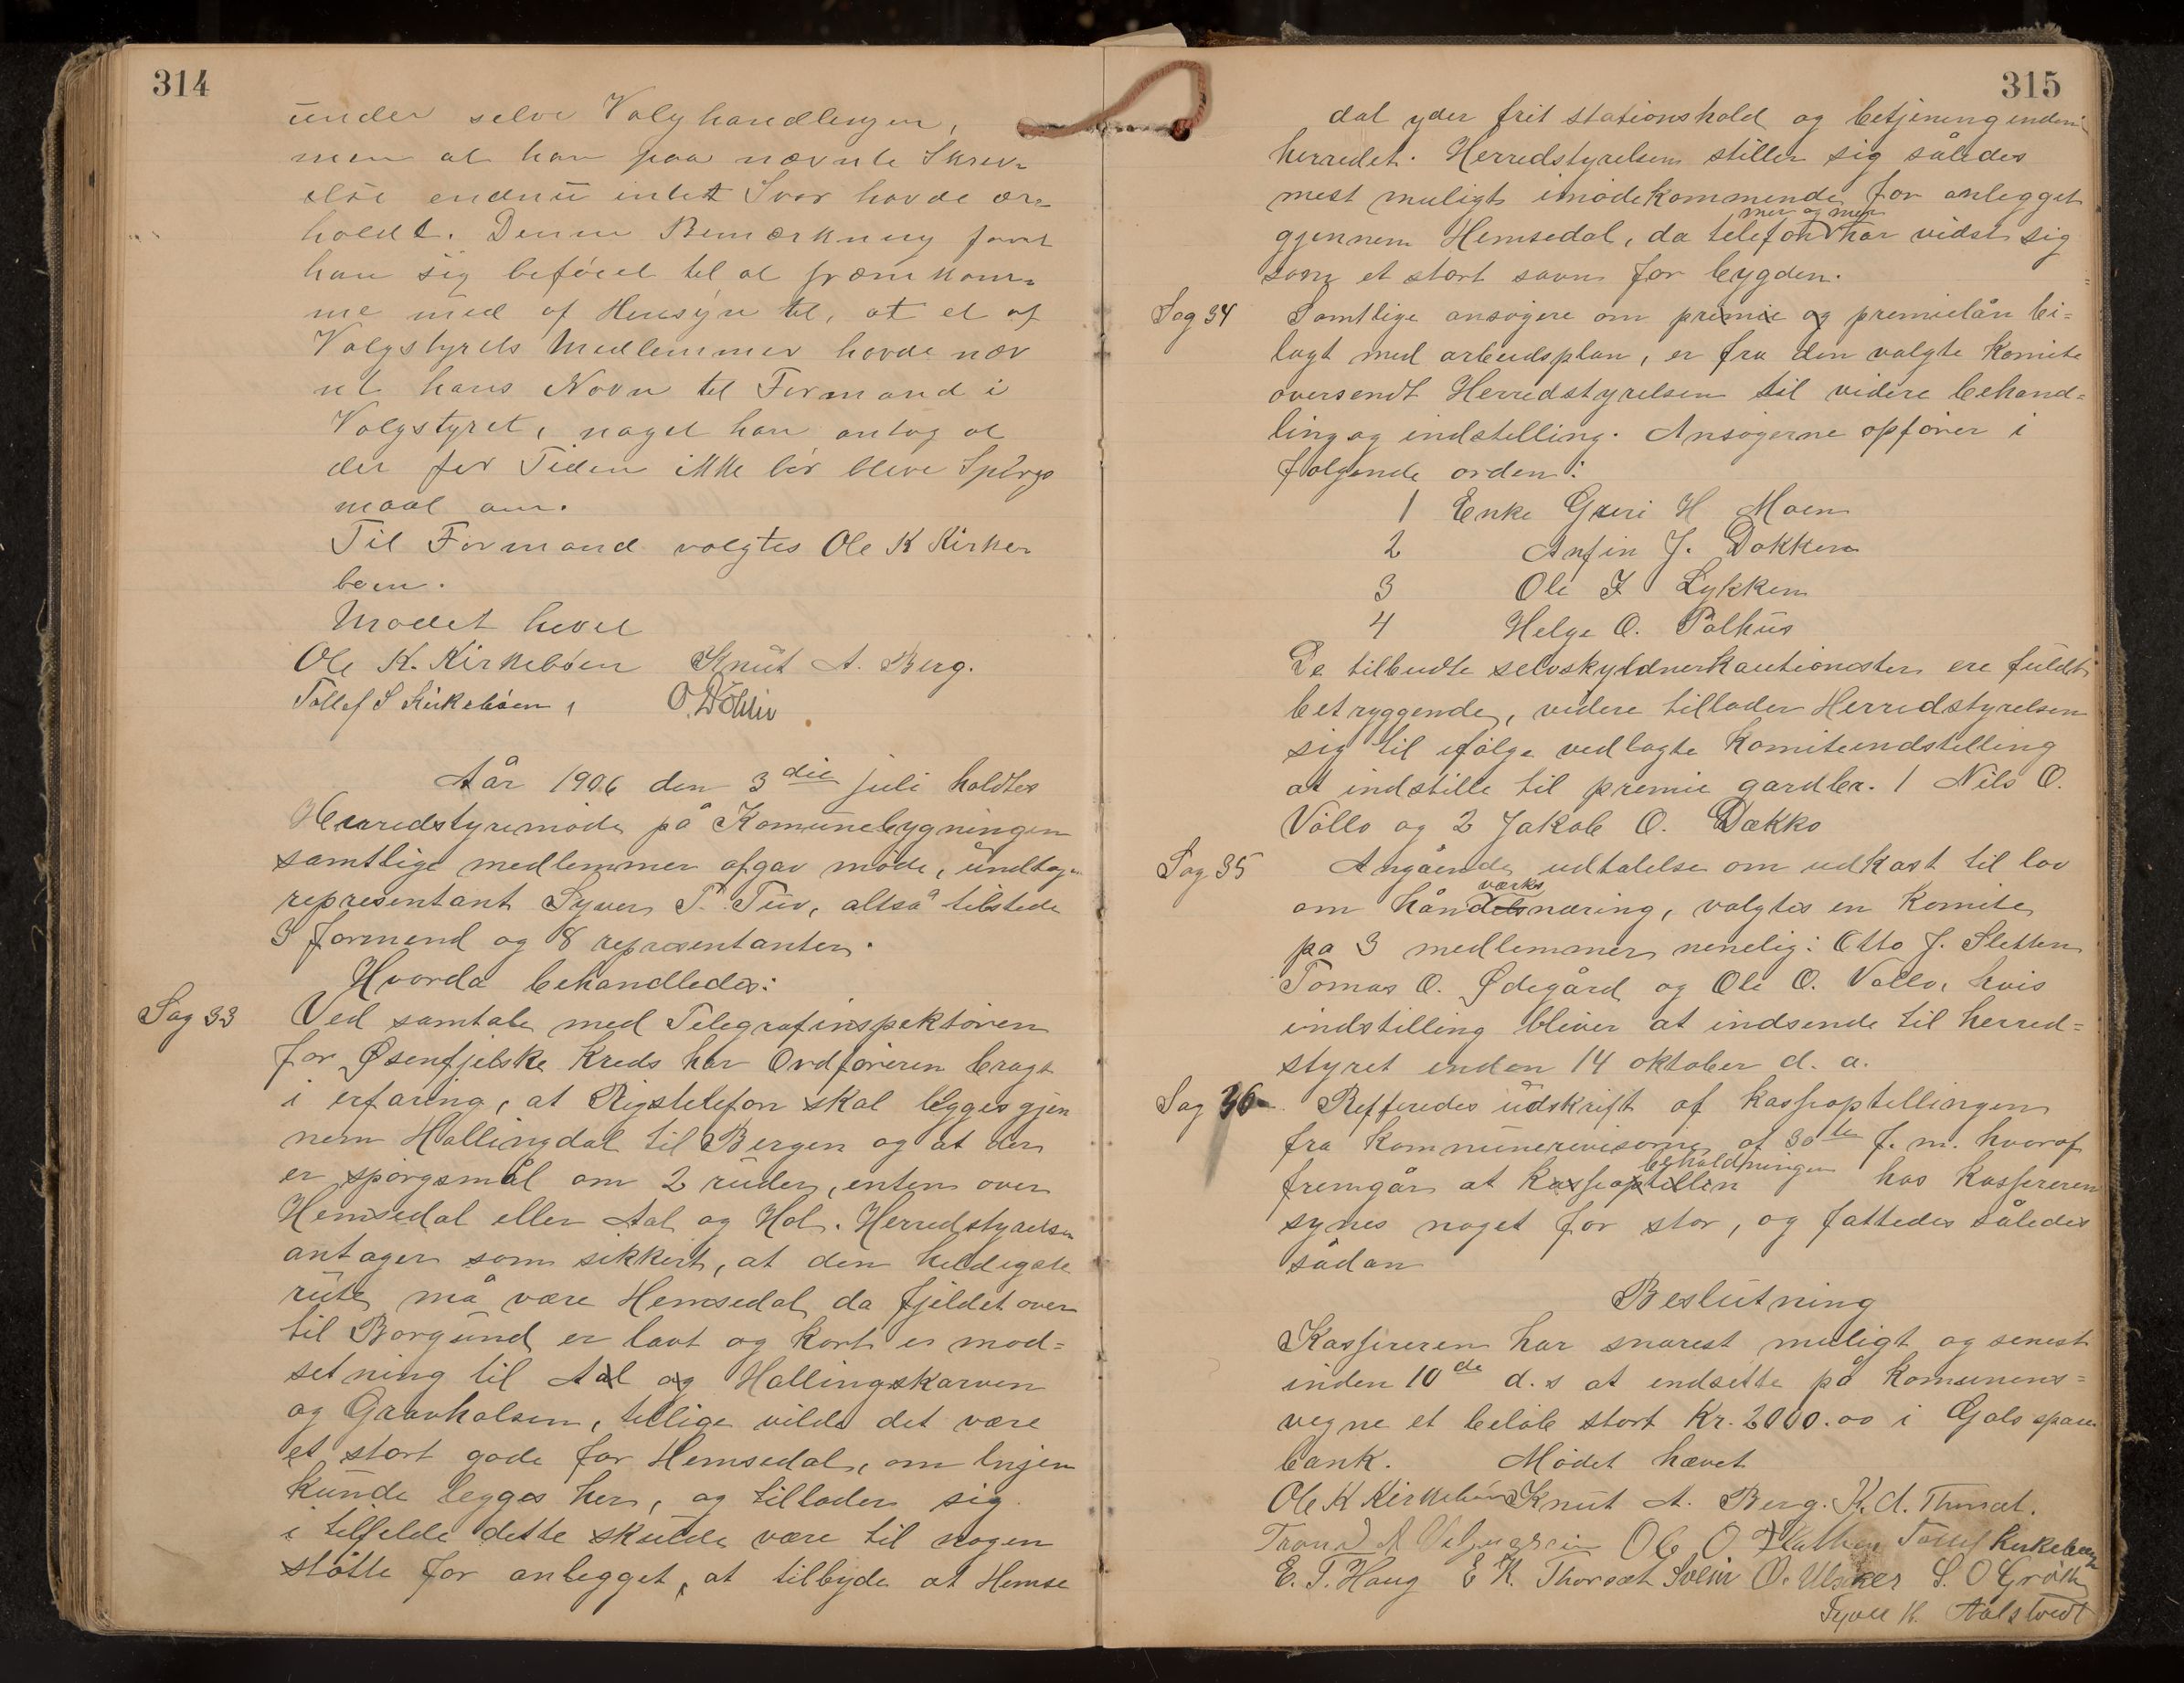 314
under selve Valghandlingen,
men at han paa nævnte Skriv=
else endnu intet Svar havde er=
holdt. Denne Bemærkning fandt
han sig beføiet til at fræmkom=
me med af Hensyn til, at et af
Valgstyrets Medlemmer havde næv
nt hans Navn til Formand i
Valgstyret, noget han antog at
der for Tiden ikke bør blive Spørgs
maal om.
Til Formand valgtes Ole K Kirke=
bøen.
Mødet hevet
Ole K. Kirkebøen Knut A. Berg.
Tollef S Kirkebøen,
Aår 1906 den 3die juli holdtes
Herredstyremøde på Komunebygningen
samtlige medlemmer afgav møde, undtag.
representant Syver T. Tuv, altså tilstede
3 formend og 8 representanter.
Hvorda behandledes:
Sag 33 Ved samtale med Telegrafinspektøren
for Øsenfjelske Kreds har Ordføreren bragt
i erfaring, at Rigstelefon skal legges gjen
nem Hallingdal til Bergen og at der
er spørgsmål om 2 ruder, enten over
Hemsedal eller Aal og Hol. Herredstyrelsen
antager som sikkert, at den heldigste
rute må være Hemsedal da fjeldet over
til Borgund er lavt og kort es mod=
setning til Aal og Hallingskarven
og Gravhalsen, tillige vilde det være
et stort gode for Hemsedal, om linjen
kunde legges her, og tillader sig
i tilfelde dette skulde være til nogen
støtte for anlegget, at tilbyde at Hemse
315
dal yder frit stationshold og betjening inden
herredet. Herredstyrelsen stiller sig således
mest muligt imødekommende for anlegget
gjennem Hemsedal, da telefon mer og mer har vidst sig
som et stort savn for bygden.
Sag 34 Samtlige ansøgere om premie og premielån bi=
lagt med arbeidsplan, er fra den valgte Komite
oversendt Herredstyrelsen til videre behand=
ling og indstelling. Ansøgerne opføres i
følgende orden:
1 Enke Guri H Moen
2 Anfin J. Dokken
3 Ole I Lykken
4 Helge O. Palhus
De tilbudte selvskyldnerkautionister ere fuldt
betryggende, videre tillader Herredstyrelsen
sig til ifølge vedlagte Komiteindstelling
at indstille til premie gardbr. 1 Nils O.
Vøllo og 2 Jakob O. Dække
Sag 35 Angående udtalelse om udkast til lov
om håndverksnæring, valgtes en Komite
på 3 medlemmer nemelig: Otto J. Sletten
Tomas O. Ødegård og Ole O. Vøllo, hvis
indstilling bliver at indsende til herred=
styret inden 14 oktober d. a.
Sag 36 Refferedes udskrift af kasseoptellingen
fra kommunerevisorne af 30te f. m. hvoraf
fremgår at kasseoptellin beholdningen hos kassereren
synes noget for stor, og fattedes således
sådan
Beslutning
Kassereren har snarest muligt og senest
inden 10de d.s at indsette på komunens=
vegne et beløb stort Kr. 2000.00 i Gols spare
bank. Mødet hævet
Ole K Kirkebøen Knut A. Berg. K. A. Thorset.
Ole O Flathen Tollef Kirkebøen
E. T. Haug E K. Thorset Svein O. Ulsaker S. O Grøth
K. Aalstvedt